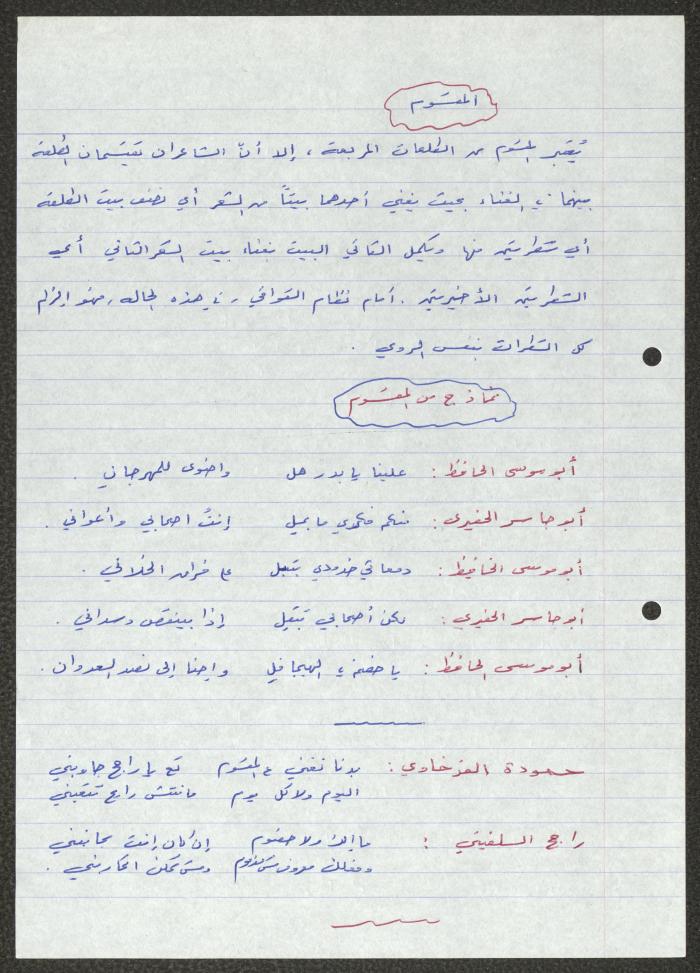 المقسوم
يُعتبر المقسوم من الطلعات المربعة ، إلا أنّ الشاعران يقتسمان الطلعة
بينهما في الغناء بحيث يغني أحدهما بيتاً من الشعر أي نصف بيت الطلعة
أي شطرتين منها ويكمل الثاني البيت بغناء بيت الشعر الثاني أي
الشطرتين الأخيرتين . أمام نظام القوافي ، في هذه الحاله ، فهو إلزام
كل الشطرات بنفس الروي .
نماذج من المقسوم
أبو موسى الحافظ : علينا يا بدر هل واضوي للمهرجاني .
أبو جاسر الحفيري : منكم ما بميل إنتُ اصحابي وأعواني .
أبو موسى الحافظ : دمعاتي خدودي بتبل على فراق الخلاني .
أبو جاسر الحفيري : لكن أصحابي بتقل إذا بينقص وسداني .
أبو موسى الحافظ : يا خصم في الهيجا فل واحنا إلى نصد العدوان .
حمودة القزخاوي : بدنا نغني ع المقسوم تع يا راجح جاوبني
اليوم ولا كل يوم مانتش رايح تتعبني
راجح السلفيتي : ما إلك ولا حقوم إن كان إنت بجانبني
ومش ممكن انكارني .